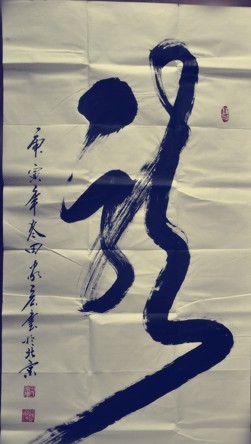 龍
庚寅年春田家書於北京